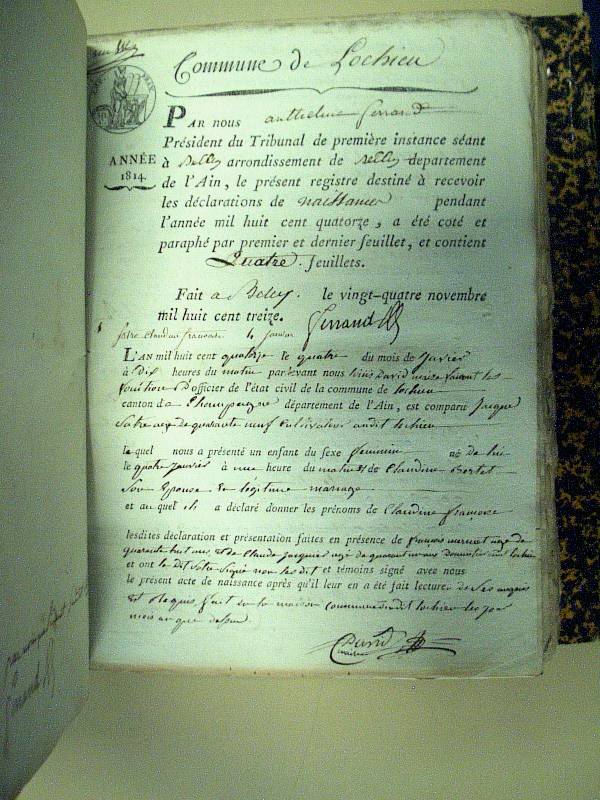 Commune de Lochieu
PAR nous anthelme ferrand
Président du Tribunal de première instance séant
ANNÉE
1814.
à Belley arrondissement de Belley département
de l'Ain, le présent registre destiné à recevoir
les déclarations de naissance pendant
l'année mil huit cent quatorze, a été coté et
paraphé par premier et dernier feuillet, et contient
Quatre feuillets.
Fait à Belley. le vingt-quatre novembre
mil huit cent treize. ferrand
claudine françoise 4 janvier
L'AN mil huit cent quatorze le quatre du mois de janvier
à dix heures du matin pardevant nous David maire faisant les
fonctions D'officier de l'état civil de la commune de lochieu
canton de Champagne département de l'Ain, est comparu jacques
agé de quarante neuf cultivateur audit lochieu
lequel nous a présenté un enfant du sexe feminin né de lui
le quatre janvier à une heure du matin & de Claudine
Son Epouse en légitime mariage
et auquel il a déclaré donner les prénoms de Claudine françoise
lesdites déclaration et présentation faites en présence de françois agé de
quarante huit ans et de Claude jacques agé de quarante ans lochieu
et ont le dit signé non les dit et témoins signé avec nous
le présent acte de naissance après qu'il leur en a été fait lecture de
et Requis, fait en la maison commune dudit lochieu les jour
mois an que dessus
David
maire